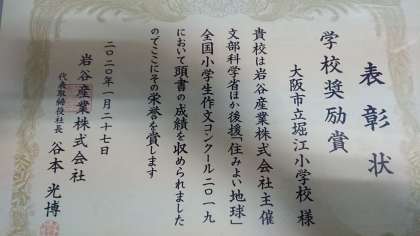 表彰状
学校奨励賞
大阪市立堀江小学校 様
貴校は岩谷産業株式会社主催
文部科学省ほか後援「住みよい地球」
全国小学生作文コンクール二〇一九
において頭書の成績を収められました
のでここにその栄誉を賞します
二〇二〇年一月二十七日
岩谷産業株式会社
代表取締役社長 谷本光博